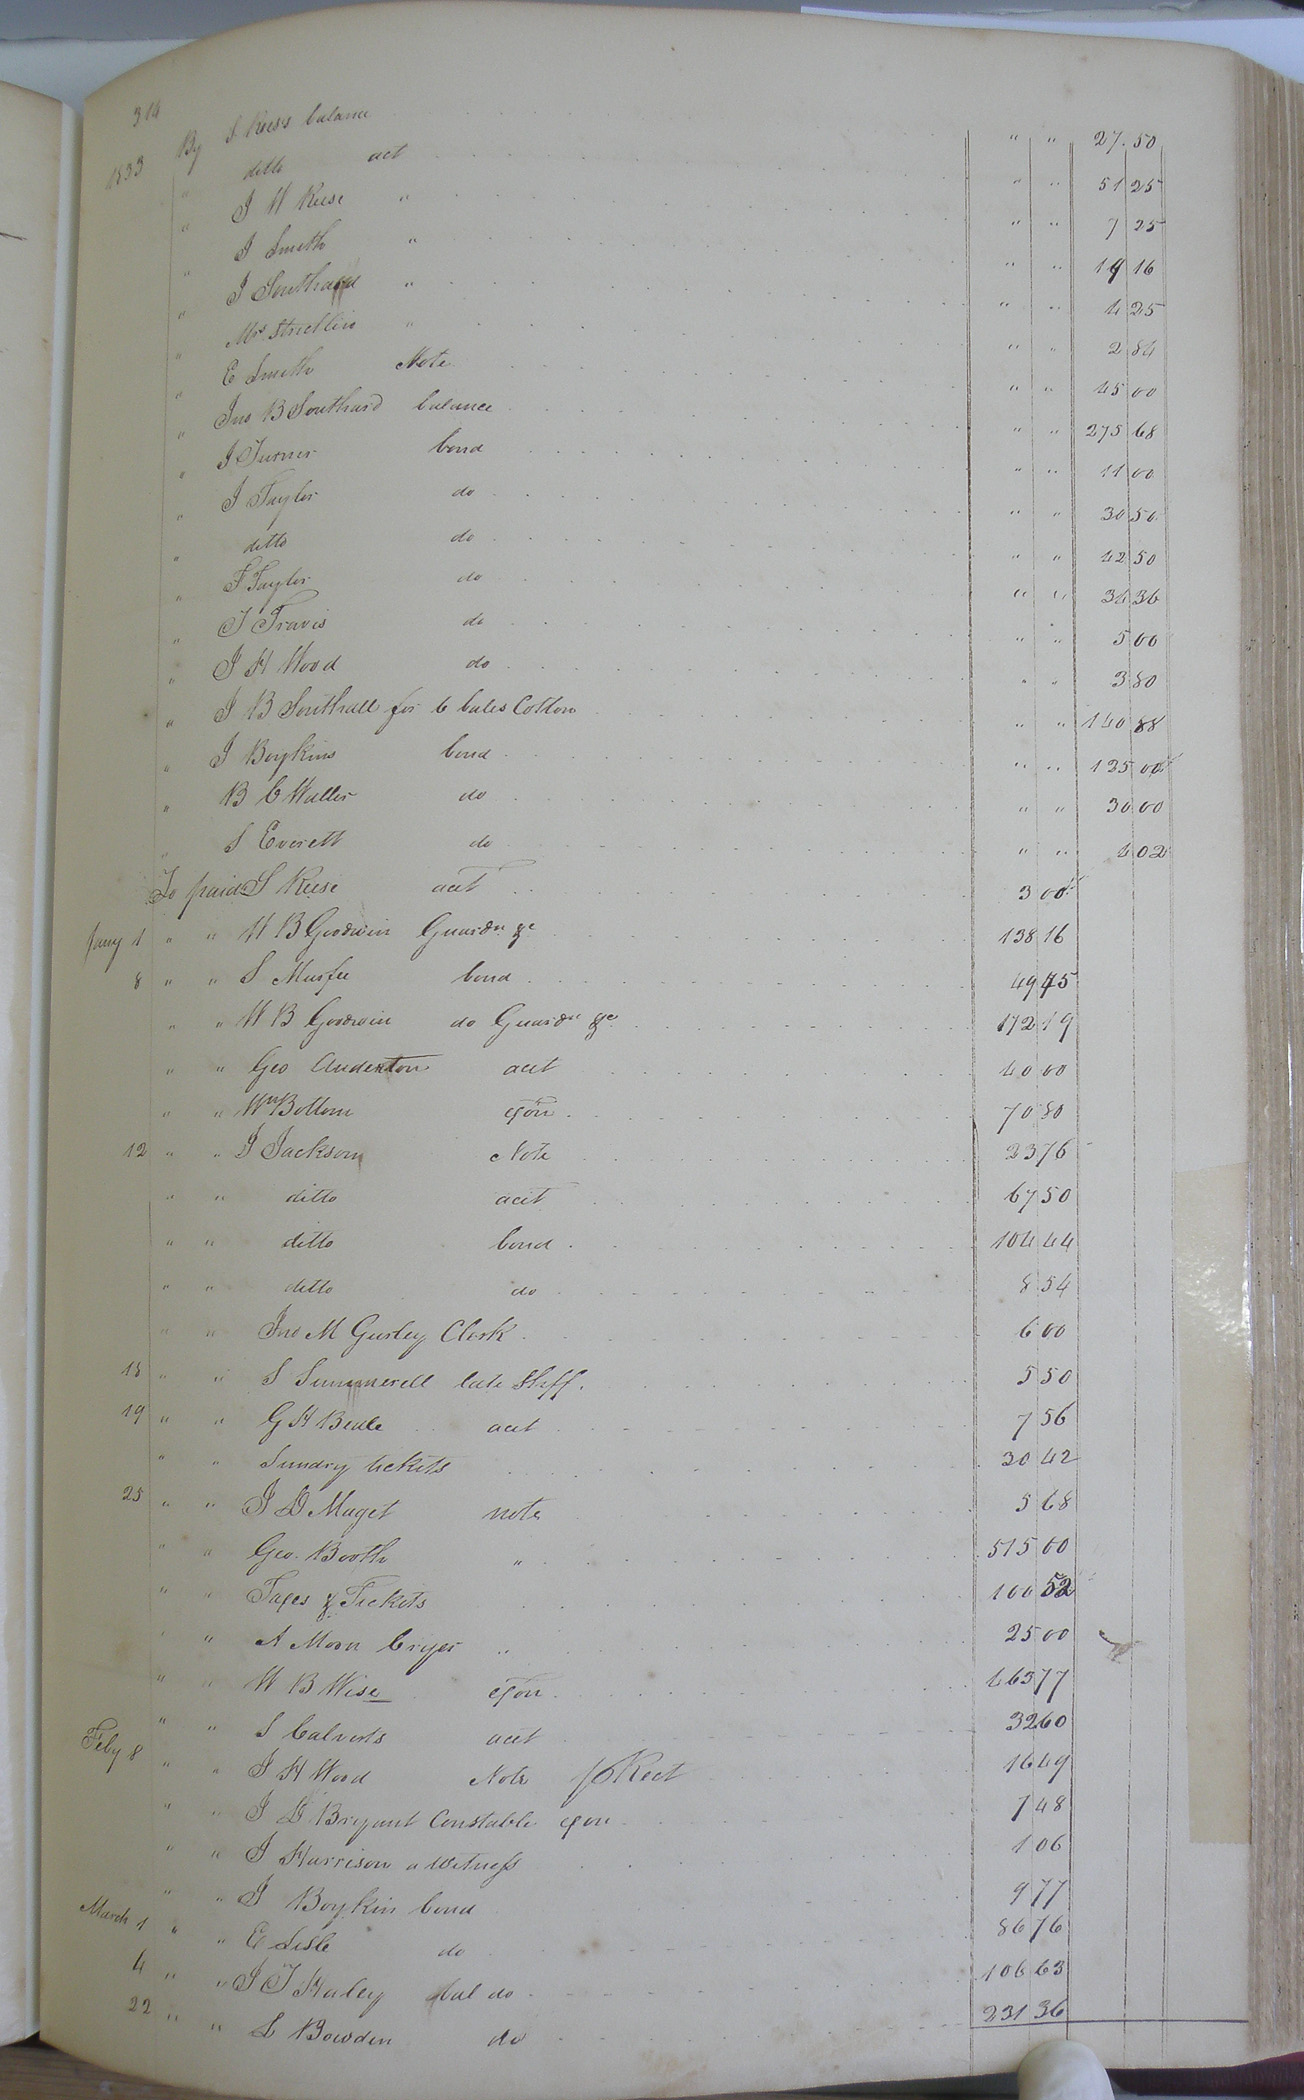 314
1833 By S. Reess balance " " 27.50
" ditto act " " 51 25
" J W Reese " " " 7 25
" J Smith " " " 19 16
" J Southard " " " 4 25
" Mrs Stricklin " " " 2 84
" E Smith Note " " 45 00
" Jno B Southard balance " " 275 68
" J Turner bond " " 11 00
" J Taylor do " " 30 50
" ditto do " " 42 50
" F Taylor do " " 34 36
" T Travis do " " 5 00
" J H Wood do " " 3 80
" J B Southall for 6 bales Cotton " " 140 88
" J Boykins bond " " 125 00
" B C Waller do " " 30 00
" S Everett do " " 4 02
To paid S Reese act 3 00
Jany 1 " " W B Goodwin Guardn &c 138 16
8 " " S Murfee bond 49 45
" " W B Goodwin do Guardn &c 172 19
" " Geo Anderton acct 40 00
" " Wm Bottom exōn 70 80
12 " " J Jackson Note 23 76
" " ditto acct 67 50
" " ditto bond 104 44
" " ditto do 8 54
" " Jno M Gurley Clerk 6 00
18 " " S Summerell late Shff. 5 50
19 " " G H Beale acct 7 56
" " Sundry tickets 30 42
25 " " J D Maget note 5 68
" " Geo. Booth " 515 00
" " Taxes & Tickets 100 52
" " A Moon Cryer " 25 00
" " W B Wise exōn 463 77
" " S Calverts acct 32 60
Feby 8 " " J H Wood Note 16 49
" " J D Bryant Constable exon 7 48
" " J Harrison a Witness 1 06
" " J Boykin bond 9 77
March 1 " " E Lisle do 86 76
4 " " J T Haley bal do 106 63
22 " " L Bowden do 231 36